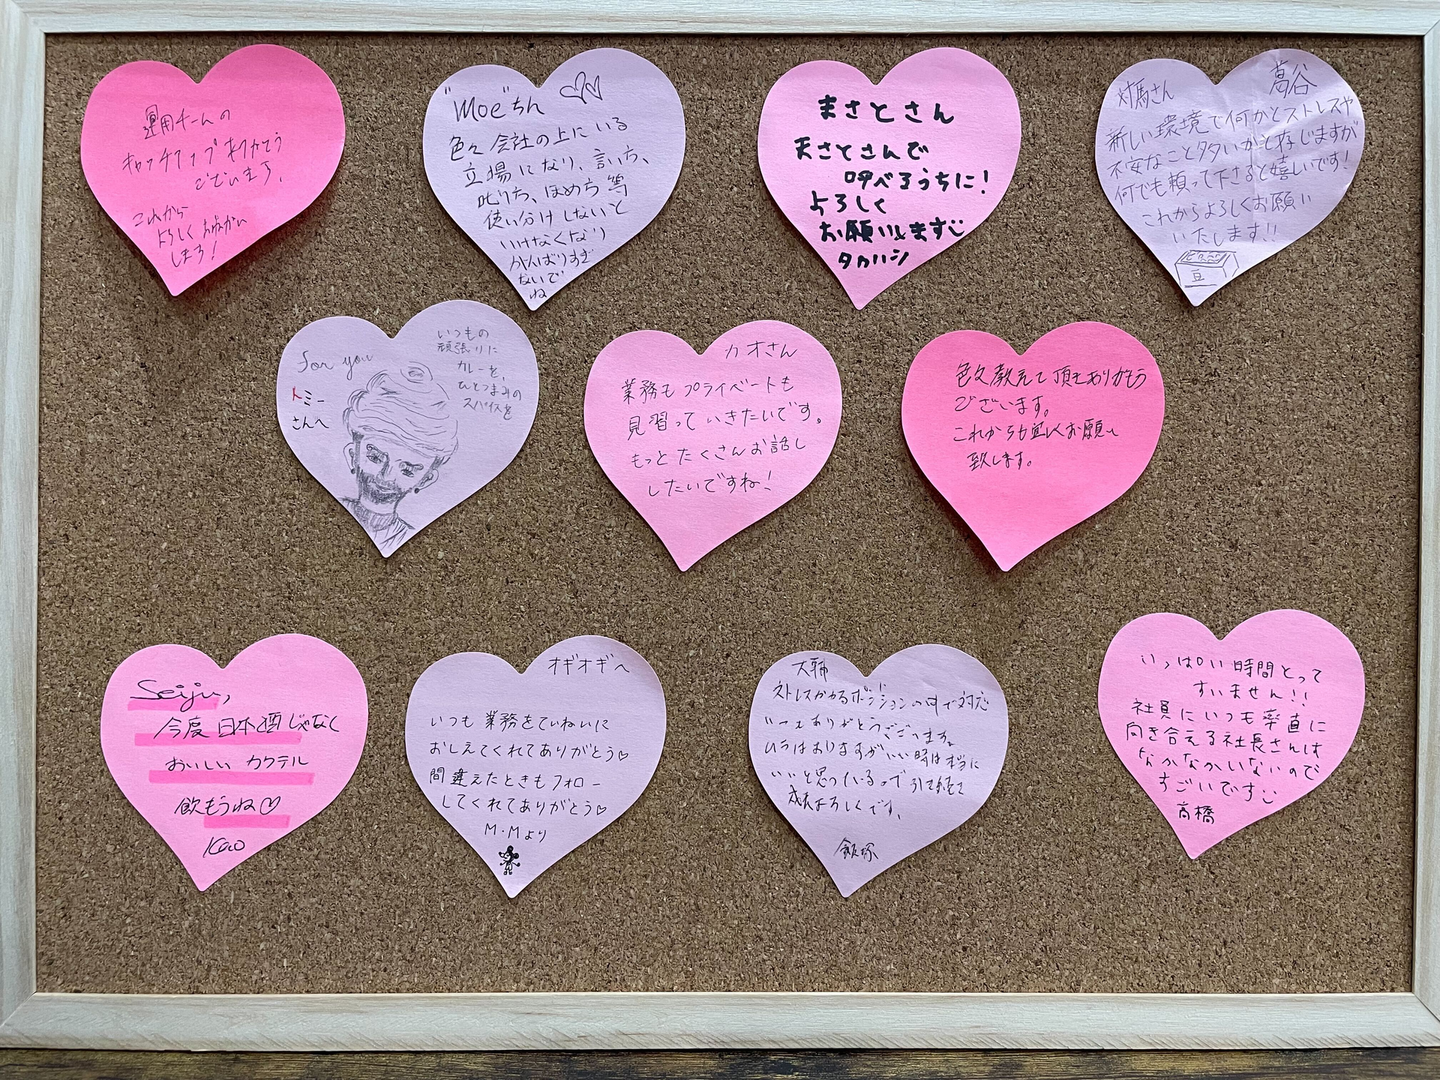 運用チームの
キャッチアップありがとう
ございます。
これから
よろしくお願い
します!
"Moe"ちん
色々会社の上にいる
立場になり、言い方、
叱り方、ほめ方等
使い分けしないと
いけなくなり
がんばりすぎ
ないで
ね
まさとさん
天さとさんで
呼べるうちに!
よろしく
お願いします
タカハシ
対馬さん
髙谷
新しい環境で何かとストレスや
不安なこと多いかと存じますが
何でも頼って下さると嬉しいです!
これからよろしくお願い
いたします!!
豆
for you
トミー
さんへ
いつもの
頑張りに
カレーを、
ひとつまみの
スパイスを
カオさん
業務もプライベートも
見習っていきたいです。
もっとたくさんお話し
したいですね!
色々教えて頂きありがとう
ございます。
これからも宜しくお願い
致します。
Seiju,
今度日本酒じゃなく
おいしいカクテル
飲もうね♡
Kao
オギオギへ
いつも業務をていねいに
おしえてくれてありがとう♡
間違えたときもフォロー
してくれてありがとう♡
M・Mより
ストレスかかるポジションの中で対応
いつもありがとうございます。
ムラはありますがいい時は本当に
いいと思っているので引き続き
よろしくです。
飯塚
いっぱい時間とって
すいません!!
社員にいつも率直に
向き合える社長さんは
なかなかいないので
すごいです
高橋